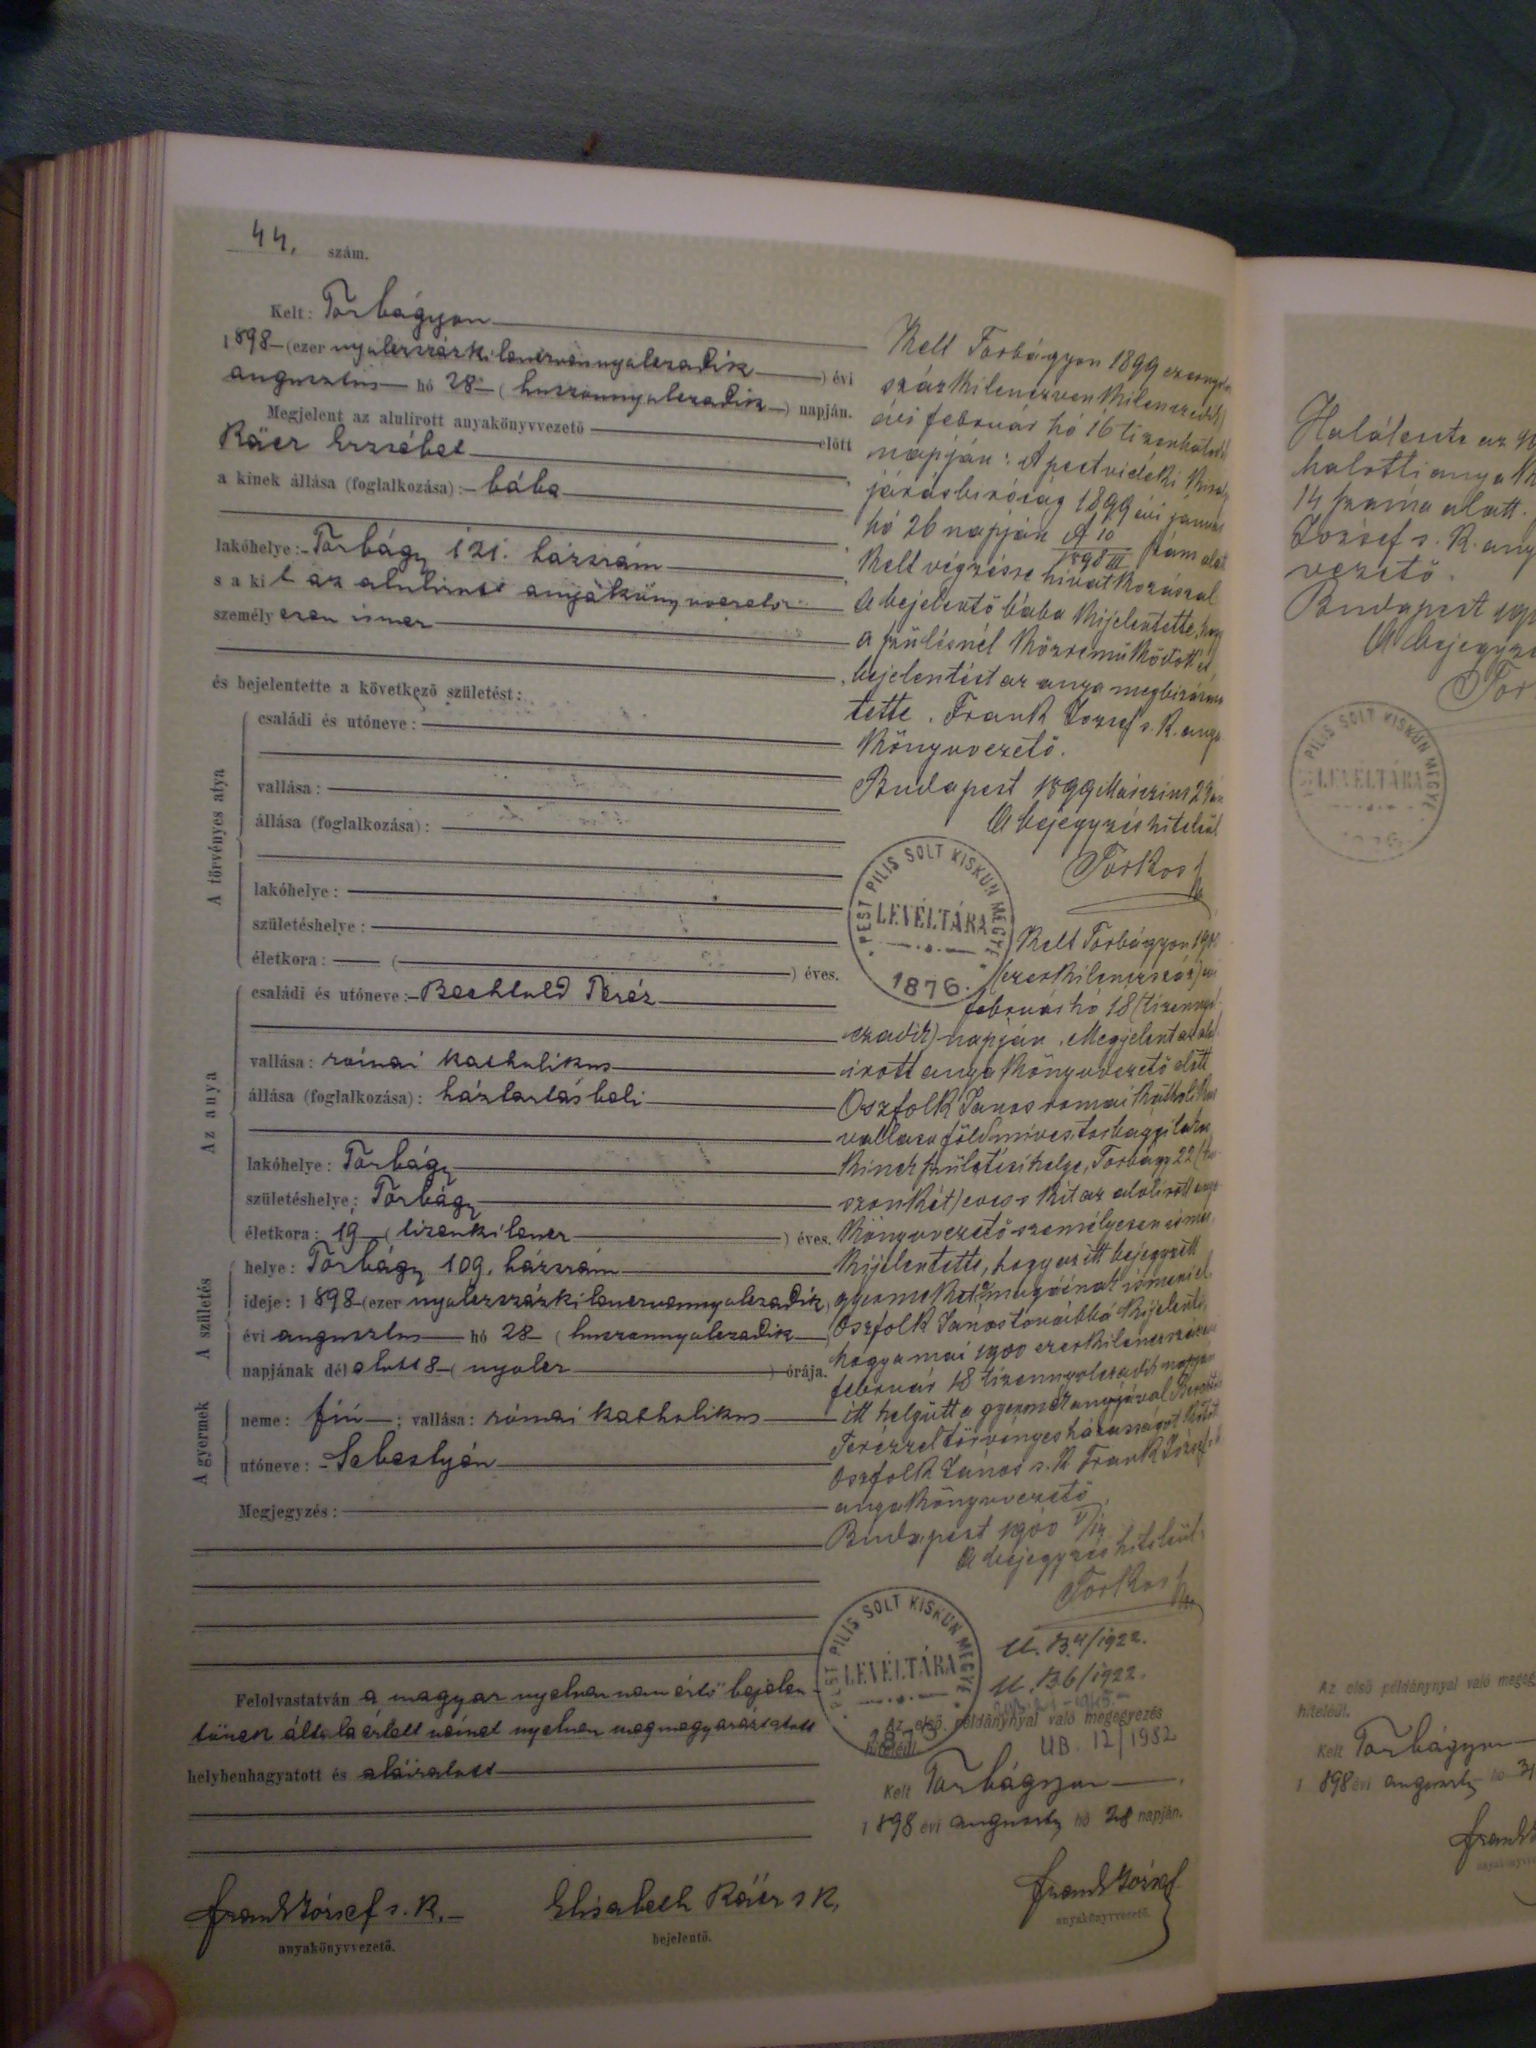 44. szám.
Kelt: Torbágyon
1898 (ezer nyolczszázkilenczvennyolczadik) évi
augusztus hó 28 (huszonnyolczadik) napján.
Megjelent az alulirott anyakönyvvezető előtt
Ráer Erzsébet
a kinek állása (foglalkozása): bába
lakóhelye: Torbágy 121. házszám
s a kit az alulirott anyakönyvvezető
személyesen ismer
és bejelentette a következő születést:
A törvényes atya
családi és utóneve:
vallása:
állása (foglalkozása):
lakóhelye:
születéshelye:
életkora: ( ) éves.
Az anya
családi és utóneve: Bechtold Teréz
vallása: római katholikus
állása (foglalkozása): háztartásbeli
lakóhelye: Torbágy
születéshelye: Torbágy
életkora: 19 (tizenkilencz) éves.
A születés
helye: Torbágy 109. házszám
ideje: 1898 (ezer nyolczszázkilenczvennyolczadik)
évi augusztus hó 28 (huszonnyolczadik)
napjának délelőtt 8 (nyolcz) órája.
A gyermek
neme: fiú; vallása: római katholikus
utóneve: Sebestyén
Megjegyzés:
Felolvastatván a magyar nyelven nem értő bejelen-
tőnek által a értett német nyelven megmagyaráztatott
helybenhagyatott és aláiratott
Frank József s. k.
anyakönyvvezető.
Elisabeth Ráer s k.
bejelentő.
Kelt Torbágyon 1899 ezernyolcz
száz kilenczven kilenczedik
évi február hó 16 tizenhatodik
napján: A pestvidéki kir.
járásbiróság 1899 évi január
hó 26 napján A 10/1898 III szám alatt
kelt végzésre hivatkozással
a bejelentő bába kijelentette, hogy
a szülésnél közreműködött és
bejelentést az anya megbizásából
tette. Frank József s. k. anya
könyvvezető.
Budapest 1899 Márczius 29
A bejegyzés hiteléül
Torkos
PEST PILIS SOLT KISKUN MEGYE
LEVÉLTÁRA
1876.
Kelt Torbágyon 1900
(ezerkilenczszáz) évi
február hó 18 (tizennyol-
czadik) napján. Megjelent az alul
irott anyakönyvvezető előtt
Oszfolk János romai katholikus
vallásu földmives, torbágyi lakos
kinek születési helye, Torbágy 22 (hu
szonkét) éves s kit az alulirott anya
könyvvezető személyesen ismer,
kijelentette, hogy az itt bejegyzett
gyermeket magáénak ismeri el.
Oszfolk János továbbá kijelenti,
hogy a mai 1900 ezerkilenczszáz
február 18 tizennyolczadik napján
itt helyütt a gyermek anyjával Bechtold
Terézzel törvényes házasságot kötött
Oszfolk János s. k Frank József s k
anyakönyvvezető
Budapest 1900
A bejegyzés hiteléül.
Torkos
PEST PILIS SOLT KISKUN MEGYE
LEVÉLTÁRA
1876
U. 134/1922.
U. 136/1922.
Az első példánynyal való megegyezés
hiteléül.
UB. 12/1982
Kelt Torbágyon
1898 évi auguszt hó 28 napján.
Frank József
anyakönyvvezető.
Haláleste az
halotti anyak
14 száma alatt.
József s. k. any
vezető.
Budapest
A bejegyzé
Tor
PILIS SOLT KISKUN MEGYE
LEVÉLTÁRA
Az első példánynyal való megeg
hiteléül.
Kelt Torbágyon
1898 évi auguszt hó 31
Frank